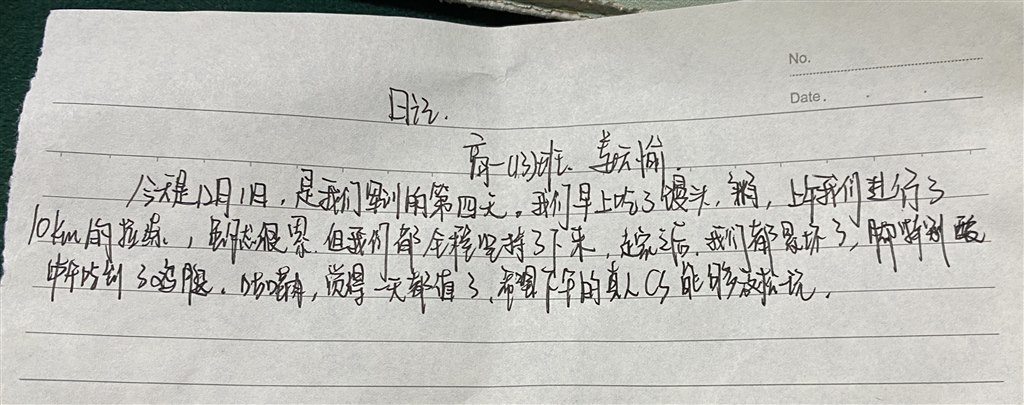 No.
Date.
日记.
高一(13)班. 姜天愉
今天是12月1日，是我们军训的第四天。我们早上吃了馒头，，上午我们进行了
10km的拉练，虽然很累 但我们都全程坚持了下来 走完之后，我们都累坏了，脚特别酸
中午吃到了鸡腿．觉得一天都值了，希望下午的真人CS能够放松玩．